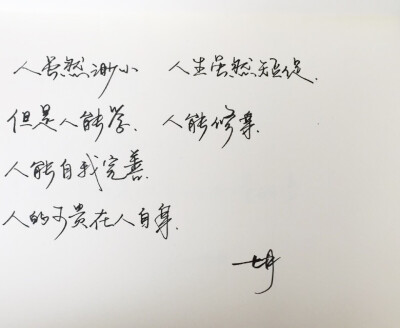 人虽然渺小 人生虽然短促.
但是人能学. 人能修身.
人能自我完善.
人的可貴在人自身.